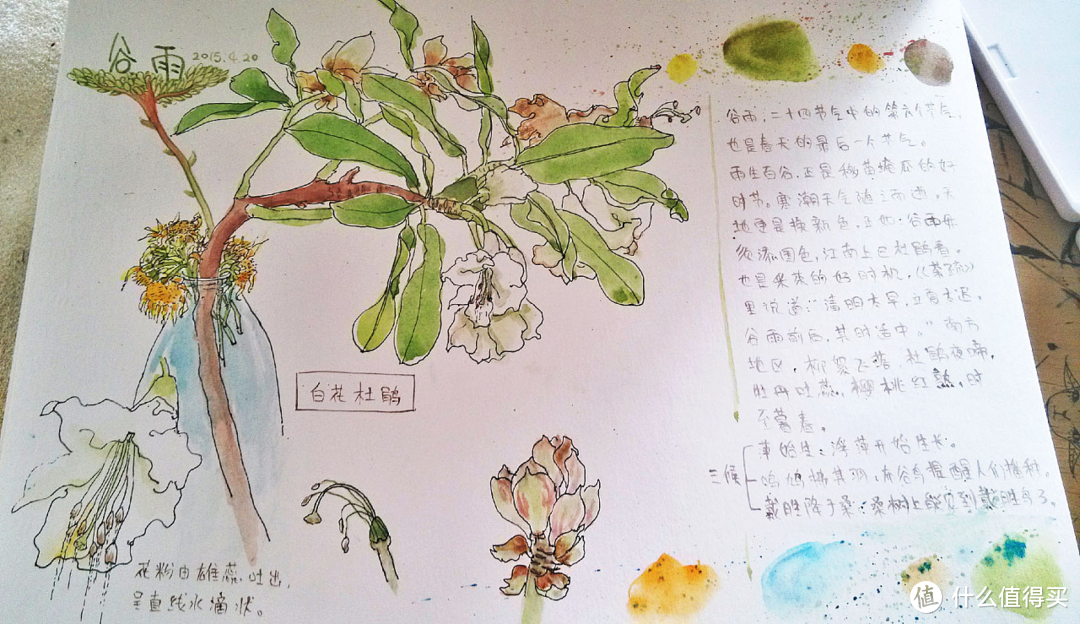 谷雨
2015.4.20
谷雨,二十四节气中的第六个节气,
也是春天的最后一个节气。
雨生百谷,正是种苗掩瓜的好
时节。寒潮天气随之而遁,天
地更是换新色,正也:谷雨
须添国色,江南上巳杜鹃看。
也是采茶的好时机,《茶疏》
里说道:"清明太早,立夏太迟,
谷雨前后,其时适中。"南方
地区,柳絮飞落,杜鹃夜啼,
牡丹吐蕊,樱桃红熟,时
至暮春。
三候
萍始生:浮萍开始生长。
鸣鸠拂其羽:布谷鸟提醒人们播种。
戴胜降于桑:桑树上能见到戴胜鸟了。
白花杜鹃
花粉由雄蕊吐出,
呈直线水滴状。
值 什么值得买